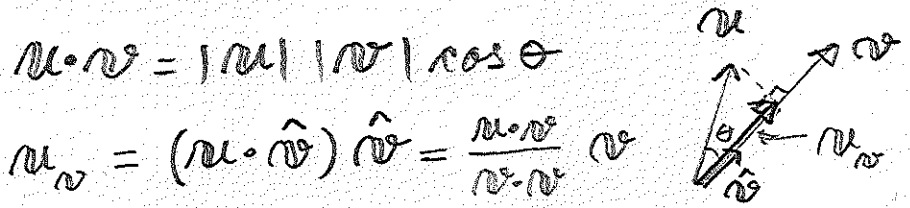 u·v = |u| |v| cos θ
u_v = (u·v̂) v̂ = u·v / v·v v
u
v
θ
u_v
v̂